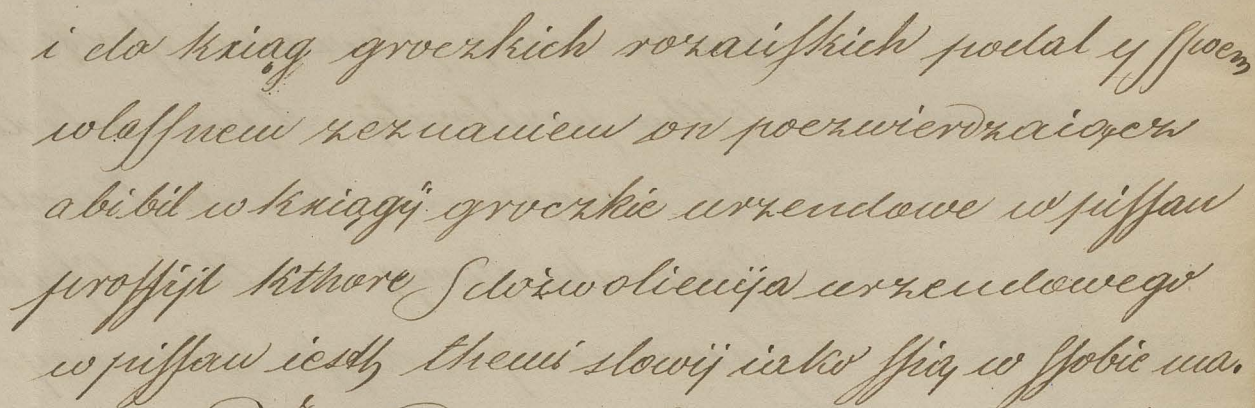 i do kxiąg groczkich rozańſkich podal y ſſwem
wlaſſnem zeznaniem on poczwierdzaiącz
abi bil w kxiągÿ groczkie urzendowe w piſſan
proſſÿl kthore ſ dożwolienÿa urzendowego
w piſſan iesth themi slowÿ iako ſſią w ſſobie ma.